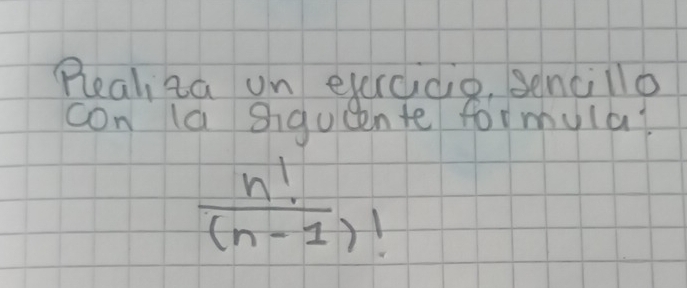 Realiza un ejercicio sencillo
con la siguiente formula:
n!
(n-1)!